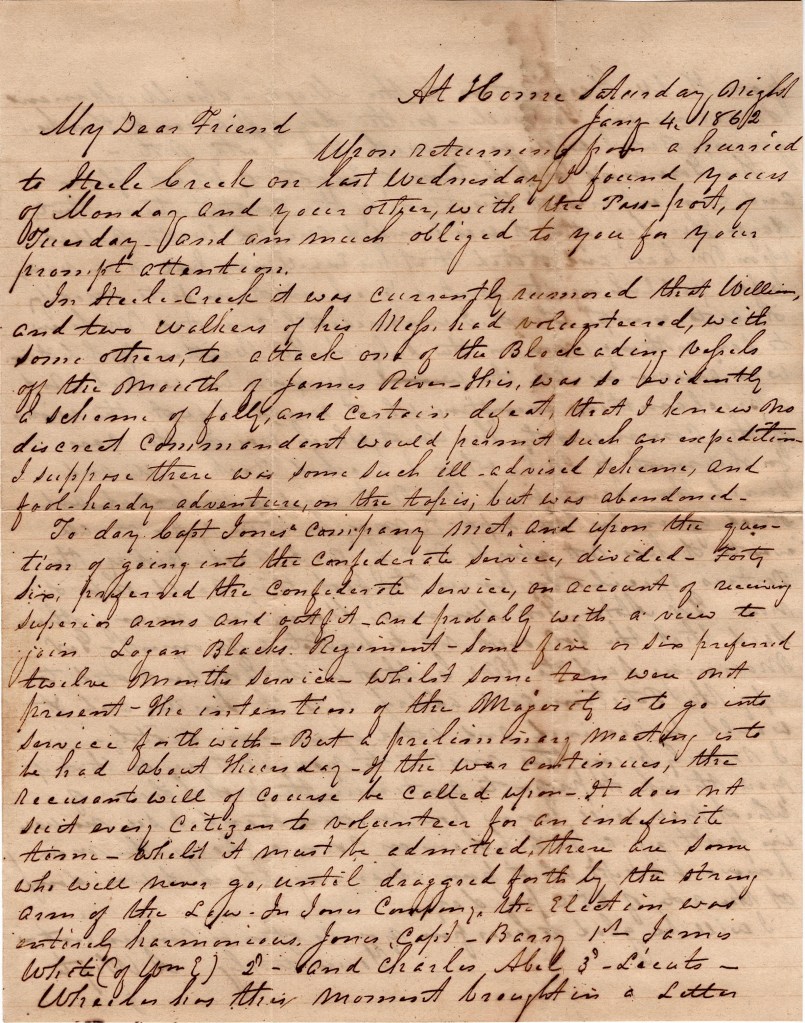 At Home Saturday Night
Jany 4, 1862
My Dear Friend
Upon returning from a hurried
to Steele Creek on last Wednesday, I found yours
of Monday, and your other, with the Pass-port, of
Tuesday - and am much obliged to you for your
prompt attention.
In Steele-Creek it was currently rumored that William,
and two Walkers of his Mess, had volunteered, with
some others, to attack one of the Blockading Vessels
off the Mouth of James River - This, was so evidently
a scheme of folly, and certain defeat, that I knew no
discreet Commandant would permit such an expedition
I suppose there was some such ill-advised scheme, and
fool-hardy adventure, on the tapis; but was abandoned -
To day Capt Jones' Company met, and upon the ques-
tion of going into the Confederate service, divided - Forty
six, preferred the Confederate service, on account of receiving
superior arms and outfit - and probably with a view to
join Logan Blacks. Regiment - Some five or six preferred
twelve Months service - whilst some ten were not
present - The intention of the Majority is to go into
service forthwith - But a preliminary meeting is to
be had about Thursday - If the war continues, the
recusants will of course be called upon - It does not
suit every Citizen to volunteer for an indefinite
time - Whilst it must be admitted, there are some
who will never go, until dragged forth by the strong
arm of the Law - In Jones Company, the Election was
entirely harmonious. Jones, Capt - Barry 1st James
White (of Wm E) 2d - and Charles Abel 3d - Lieuts -
Wheeler has this moment brought in a Letter